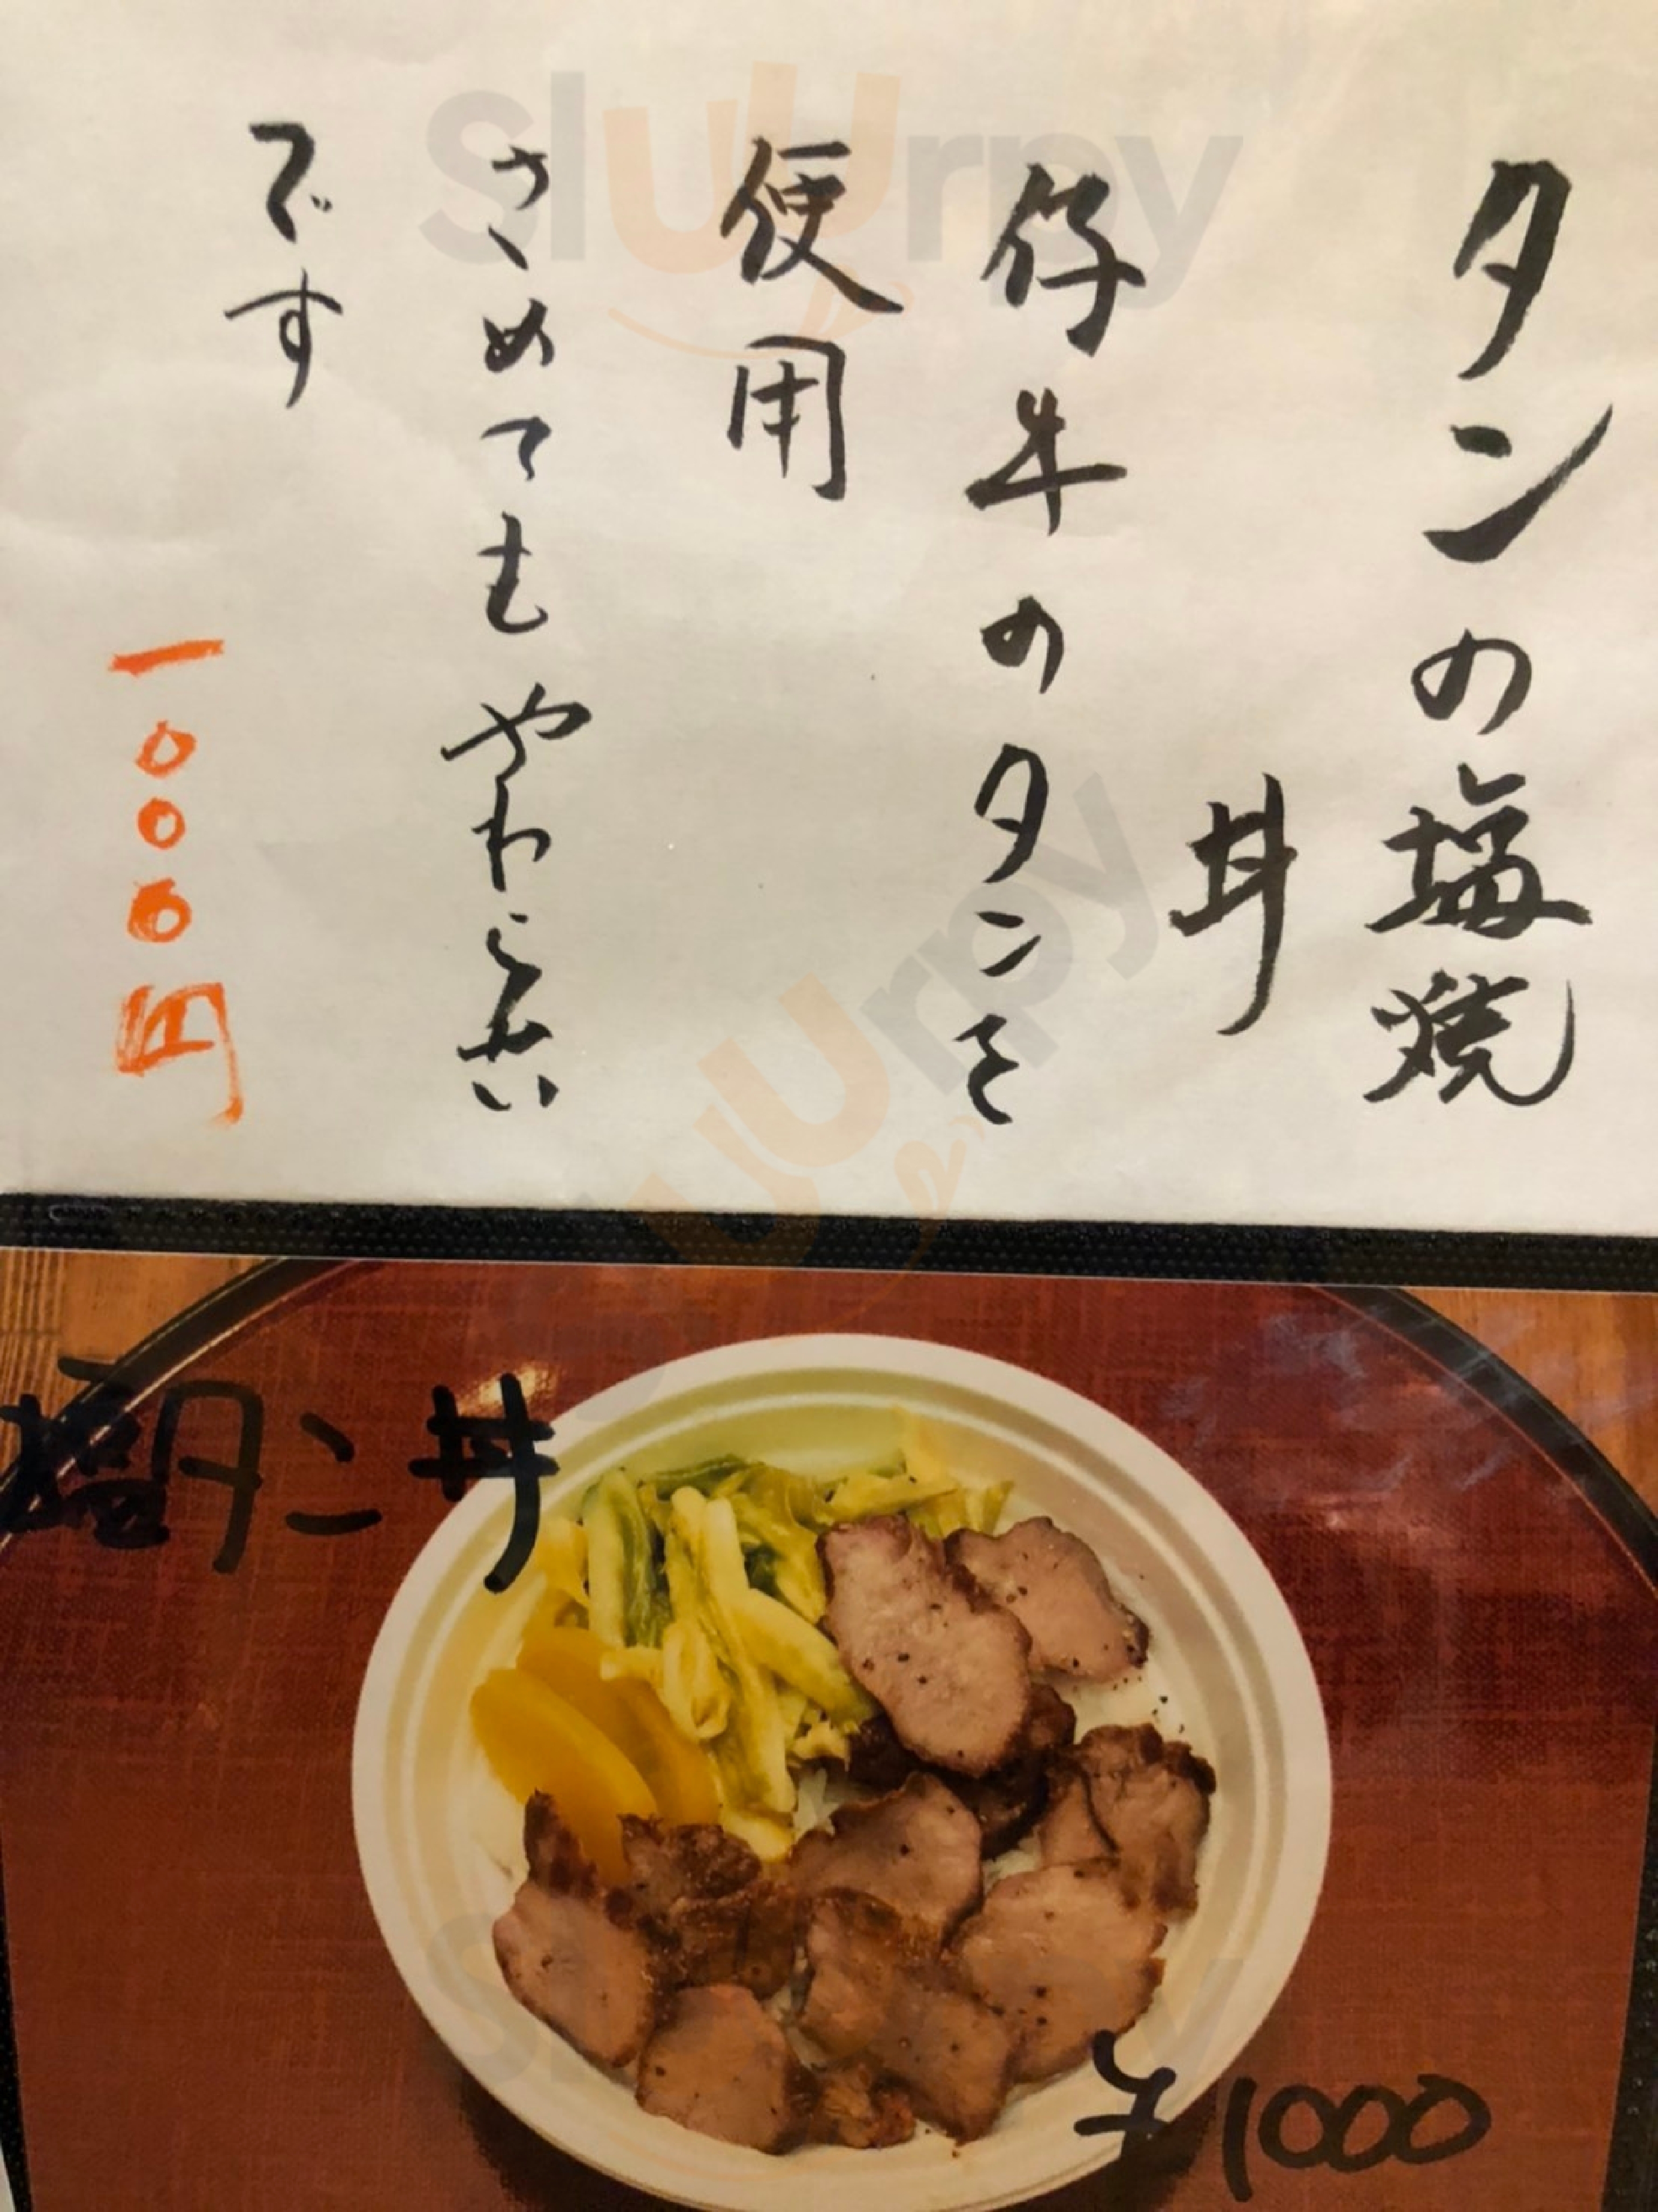 タンの塩焼
丼
仔牛のタンを
使用
さめてもやわらかい
です
一〇〇〇円
塩タン丼
¥1000
Sluurpy
Sluurpy
Sluurpy